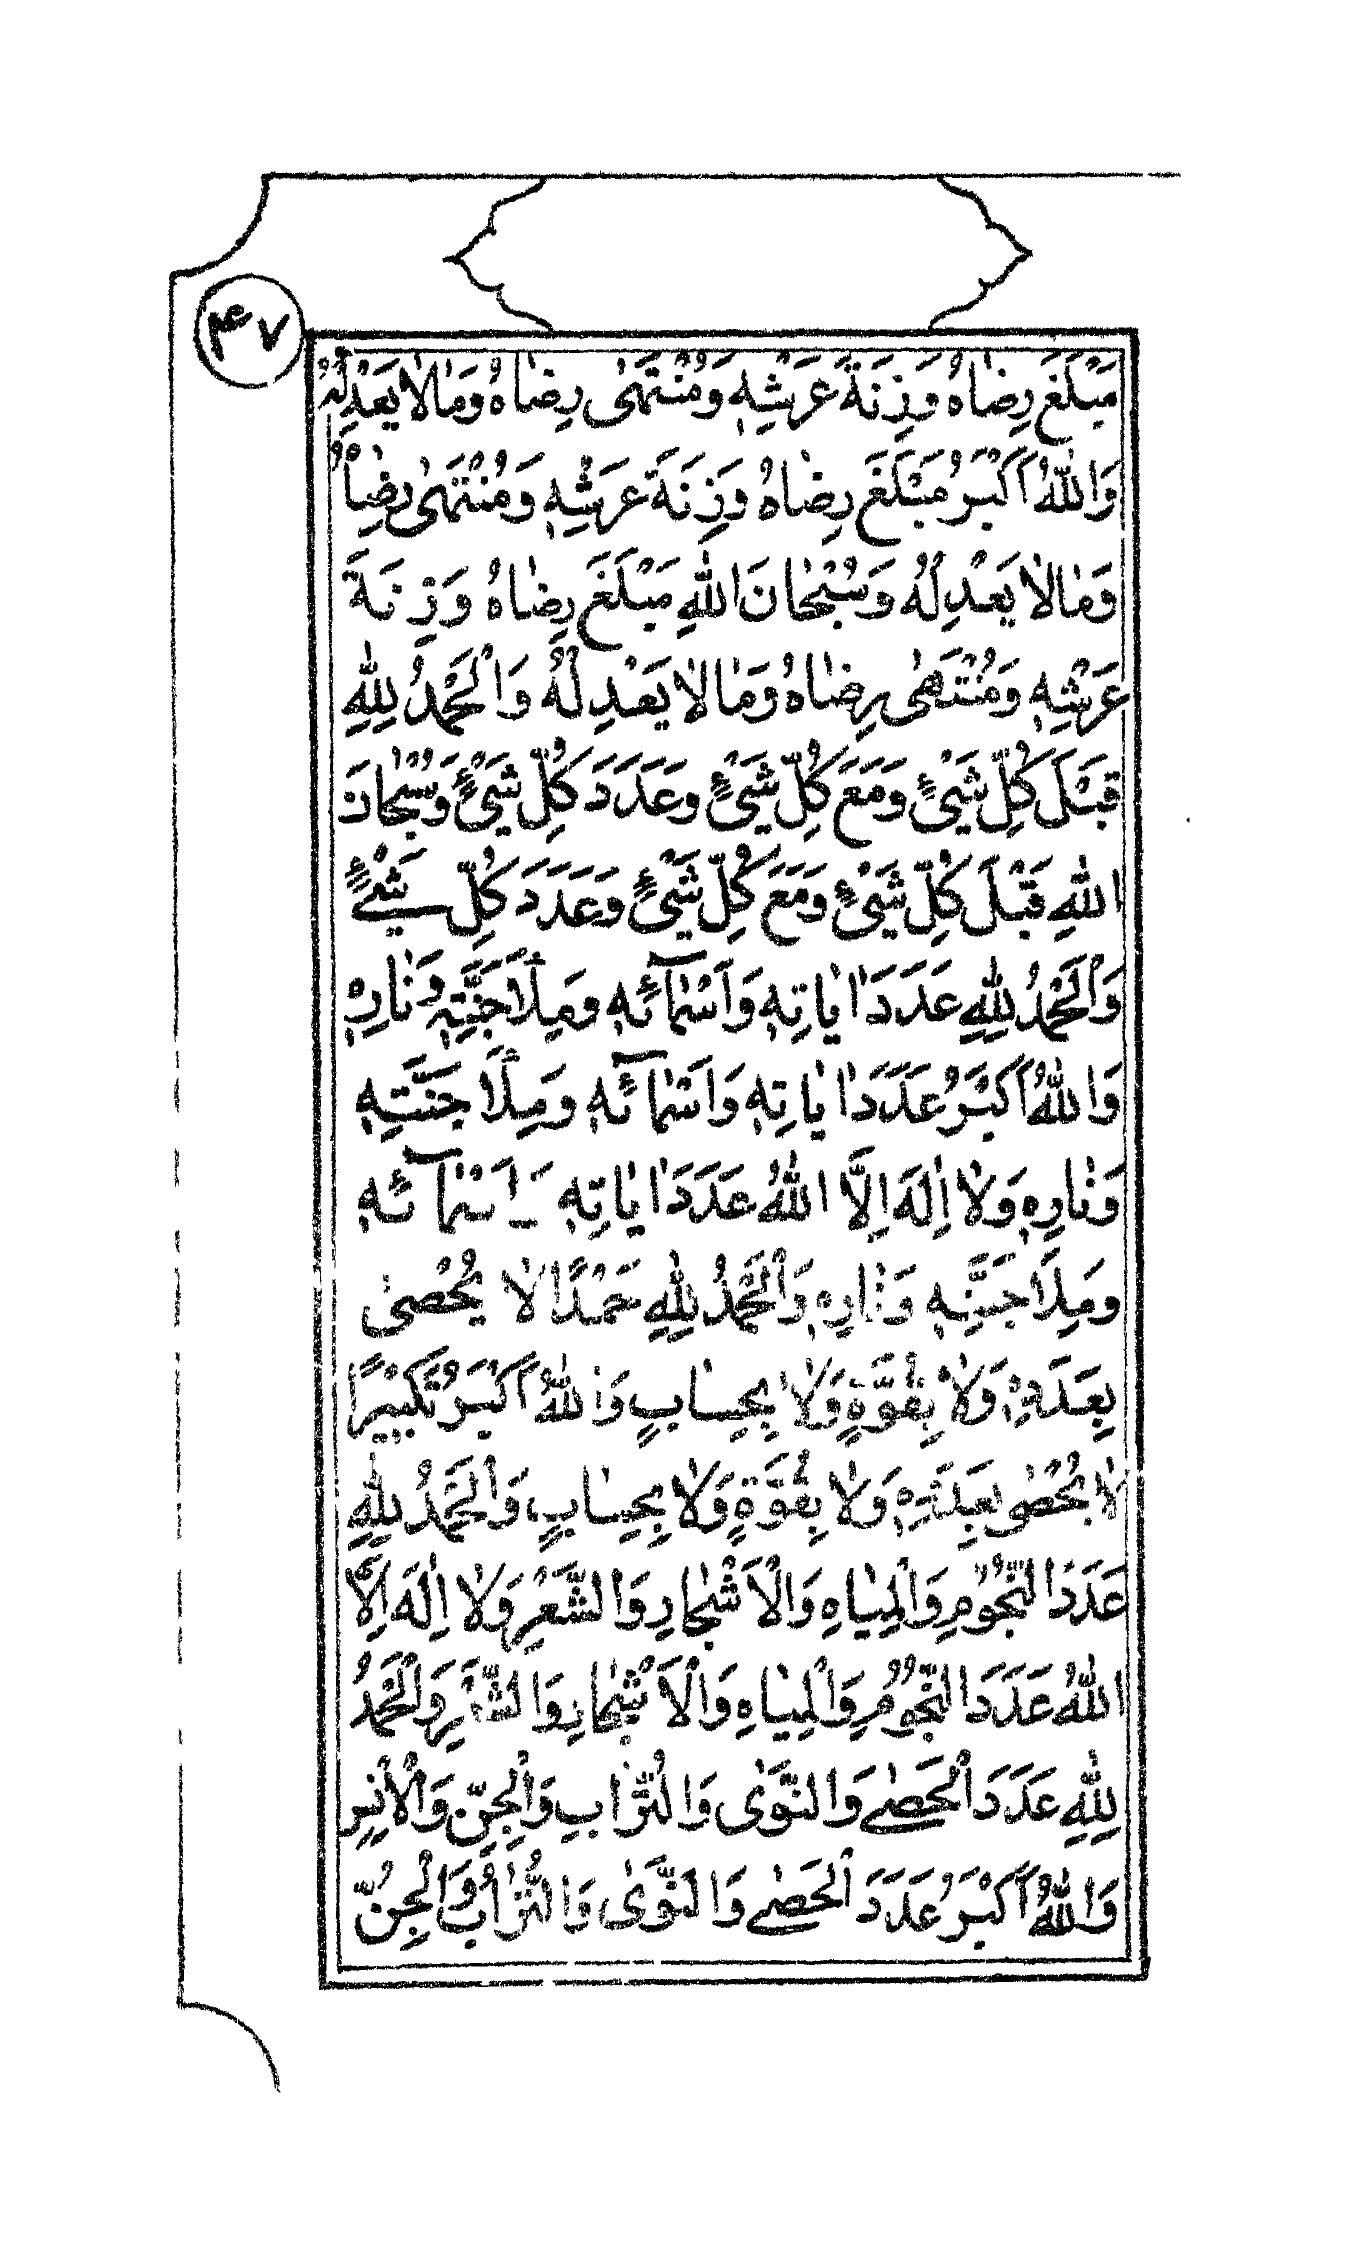 ۴۷
مَبْلَغَ رِضَاهُ وَزِنَةَ عَرْشِهٖ وَمُنْتَهٰى رِضَاهُ وَمَالَا يَعْدِلُهُ
وَاللّٰهُ اَكْبَرُ مَبْلَغَ رِضَاهُ وَزِنَةَ عَرْشِهٖ وَمُنْتَهٰى رِضَاهُ
وَمَالَا يَعْدِلُهُ وَسُبْحَانَ اللّٰهِ مَبْلَغَ رِضَاهُ وَزِنَةَ
عَرْشِهٖ وَمُنْتَهٰى رِضَاهُ وَمَالَا يَعْدِلُهُ وَالْحَمْدُ لِلّٰهِ
قَبْلَ كُلِّ شَیْئٍ وَمَعَ كُلِّ شَیْئٍ وَعَدَدَ كُلِّ شَیْئٍ وَسُبْحَانَ
اللّٰهِ قَبْلَ كُلِّ شَیْئٍ وَمَعَ كُلِّ شَیْئٍ وَعَدَدَ كُلِّ شَیْئٍ
وَالْحَمْدُ لِلّٰهِ عَدَدَ اٰيَاتِهٖ وَاَسْمَآئِهٖ وَمِلْأَ جَنَّتِهٖ وَنَارِهٖ
وَاللّٰهُ اَكْبَرُ عَدَدَ اٰيَاتِهٖ وَاَسْمَآئِهٖ وَمِلْأَ جَنَّتِهٖ
وَنَارِهٖ وَلَا اِلٰهَ اِلَّا اللّٰهُ عَدَدَ اٰيَاتِهٖ وَاَسْمَآئِهٖ
وَمِلَأَ جَنَّتِهٖ وَنَارِهٖ وَالْحَمْدُ لِلّٰهِ حَمْدًا لَا يُحْصٰى
بِعَدَدٍ وَلَا بِقُوَّةٍ وَلَا بِحِسَابٍ وَاللّٰهُ اَكْبَرُ تَكْبِيْرًا
لَا يُحْصٰى بِعَدَدٍ وَلَا بِقُوَّةٍ وَلَا بِحِسَابٍ وَالْحَمْدُ لِلّٰهِ
عَدَدَ النُّجُوْمِ وَالْمِيَاهِ وَالْاَشْجَارِ وَالشَّعْرِ وَلَا اِلٰهَ اِلَّا
اللّٰهُ عَدَدَ النُّجُوْمِ وَالْمِيَاهِ وَالْاَشْجَارِ وَالشَّعْرِ وَالْحَمْدُ
لِلّٰهِ عَدَدَ الْحَصٰے وَالنَّوٰى وَالتُّرَابِ وَالْجِنِّ وَالْاِنْسِ
وَاللّٰهُ اَكْبَرُ عَدَدَ الْحَصٰے وَالنَّوٰى وَالتُّرَابِ وَالْجِنِّ